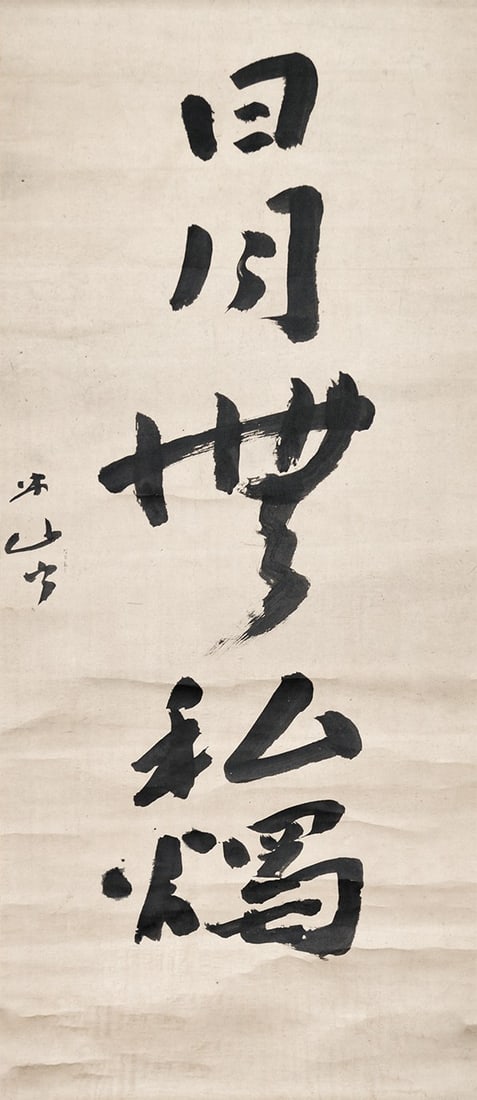 日月無私燭
米山書